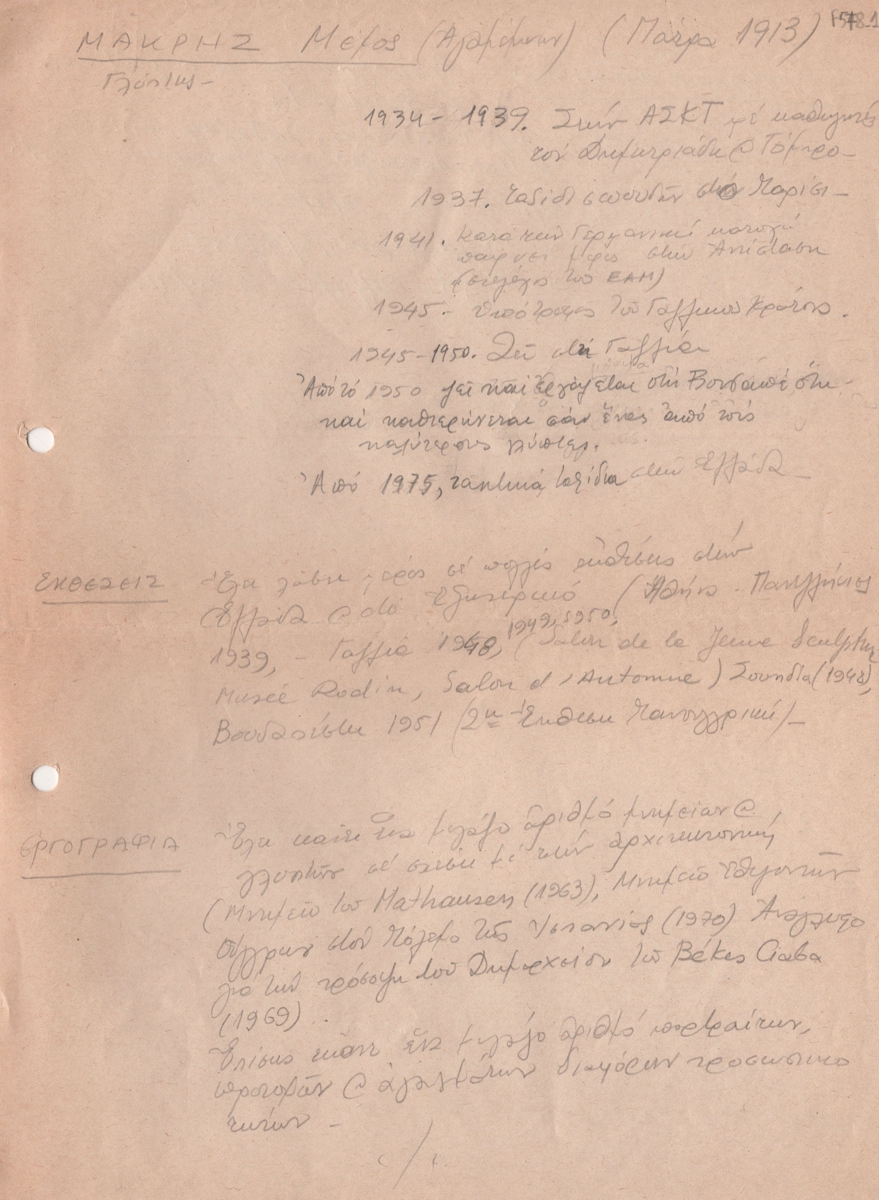 ΜΑΚΡΗΣ Μέμος (Αγαμέμνων) (Πάτρα 1913)
Γλύπτης -
1934 - 1939. Στήν ΑΣΚΤ μέ καθηγητές
τόν Δημητριάδη @ Τόμπρο -
1937. Ταξίδι σπουδών στό Παρίσι -
1941. Κατά τήν Γερμανική κατοχή
παίρνει μέρος στήν Αντίσταση
(στέλεχος του ΕΑΜ)
1945 - Υπότροφος τού Γαλλικού Κράτους.
1945-1950. Ζεί στή Γαλλία
Από τό 1950 ζεί καί εργάζεται στή Βουδαπέστη -
καί καθιερώνεται σάν ένας από τούς
καλύτερους γλύπτες.
Από 1975, τακτικά ταξίδια στήν Ελλάδα -
ΕΚΘΕΣΕΙΣ Έχει λάβει μέρος σέ πολλές εκθέσεις στήν
Ελλάδα @ στό Εξωτερικό (Αθήνα - Πανελλήνιος
1939, - Γαλλία 1948, 1949, 1950, (Salon de la Jeune Sculpture
Museé Rodin, Salon d'Automne) Σουηδία (1948),
Βουδαπέστη 1951 (2η Έκθεση Πανουγγρική) -
ΕΡΓΟΓΡΑΦΙΑ Έχει κάνει ένα μεγάλο αριθμό μνημείων @
γλυπτών σέ σχέση μέ τήν αρχιτεκτονική
(Μνημείο του Mathausen (1963), Μνημείο Εθελοντών
Ούγγρων στόν Πόλεμο τής Ισπανίας (1970) Ανάγλυφο
γιά τήν πρόσοψη τού Δημαρχείου τού Békes Ciaba
(1969)..
Επίσης έκανε ένα μεγάλο αριθμό πορτραίτων,
προτομών @ αγαλμάτων διαφόρων προσωπικο
τήτων -
./.